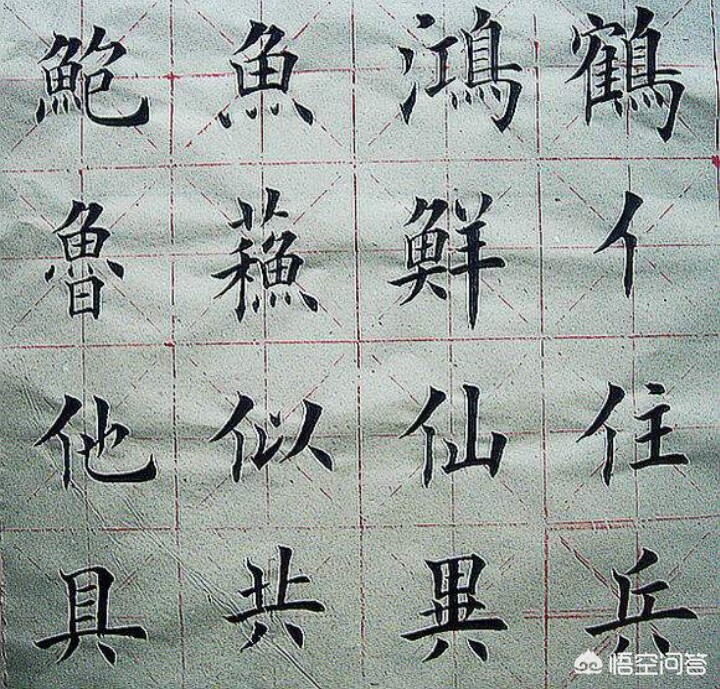 鮑魚鴻鶴
魯蘓鮮亻
他似仙住
具共異兵
悟空问答